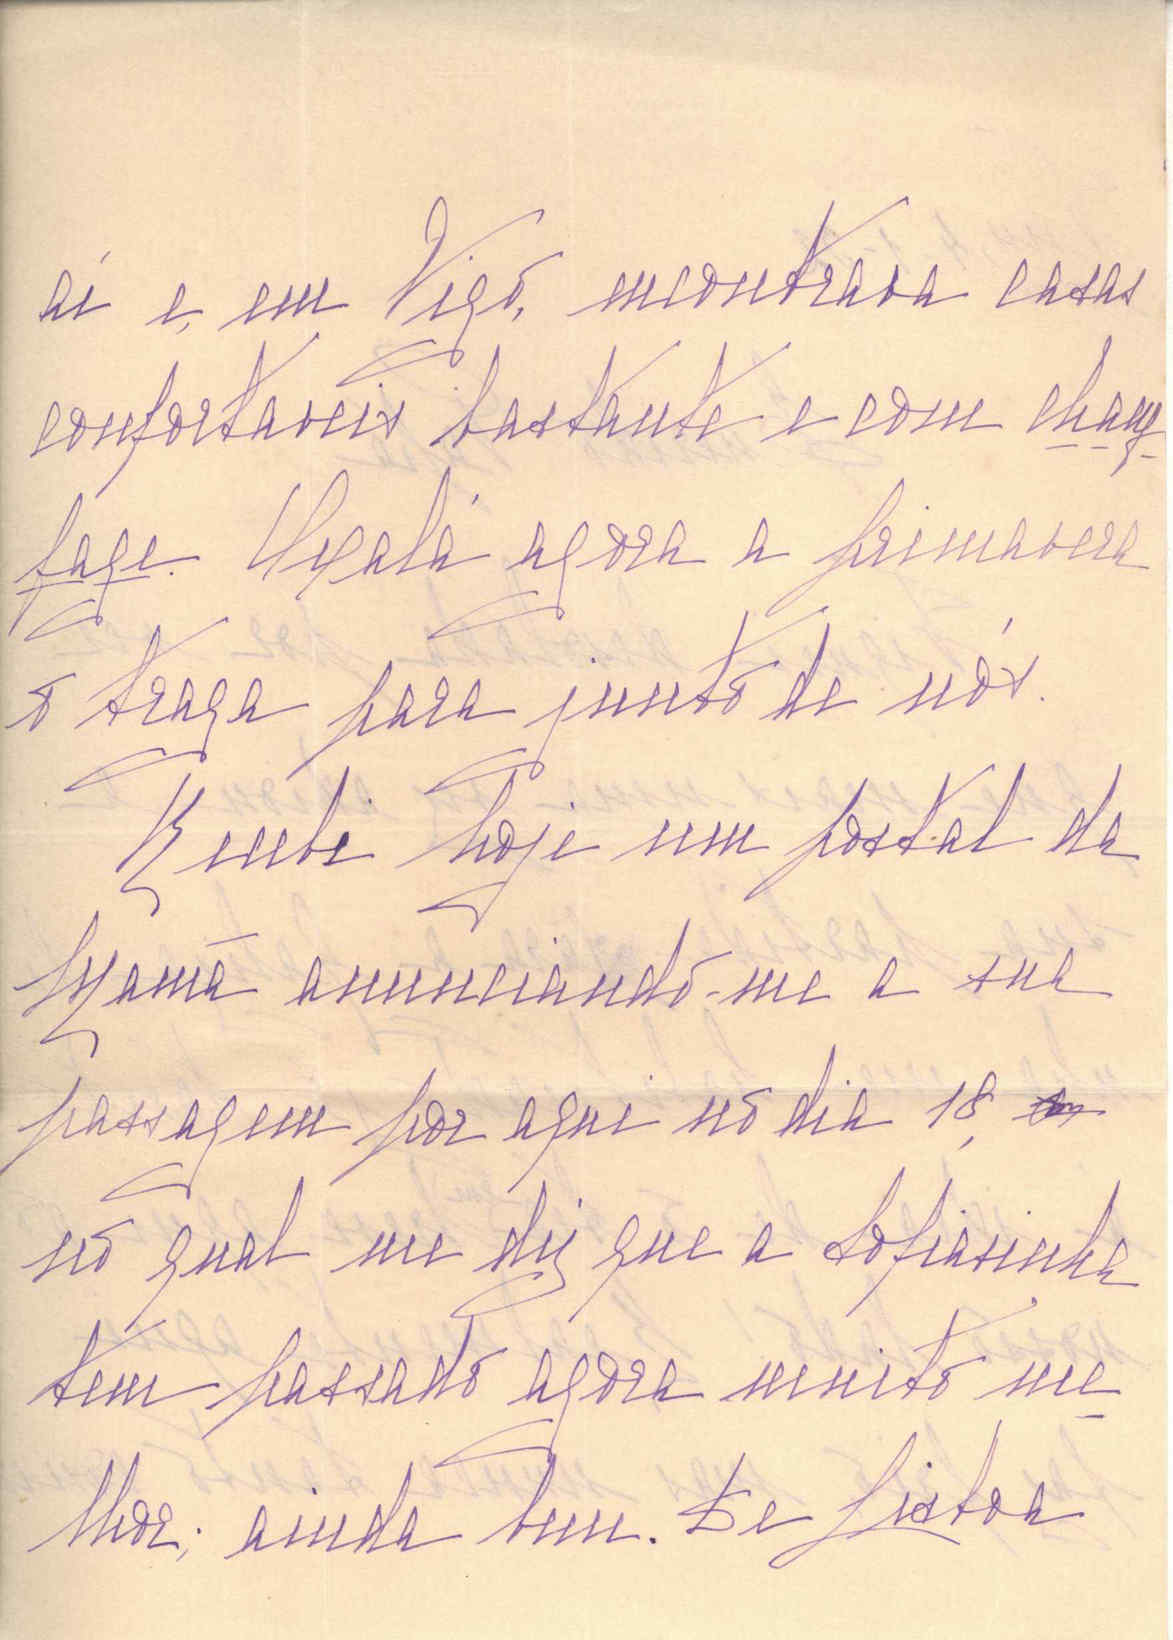 aí e, em Vigo, encontrava casas
confortaveis bastante e com chauf
fage. Oxalá agora a primavera
o traga para junto de nós.
Recebi hoje um postal da
Mamã anunciando-me a sua
passagem por aqui no dia 18,
no qual me diz que a Sofiasinha
tem passado agora muito me
lhor; ainda bem. De Lisboa